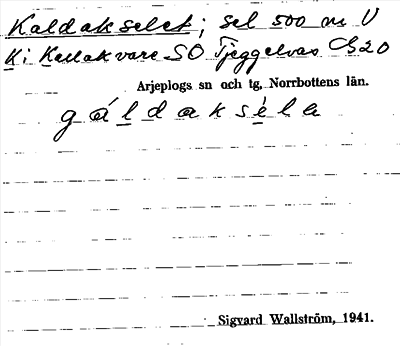 Kaldakselet; sel 500 m V
Ki Kallakvare SO Tjeggelvas
Arjeplogs sn och tg, Norrbottens län.
gáldakséla
Sigvard Wallström, 1941.